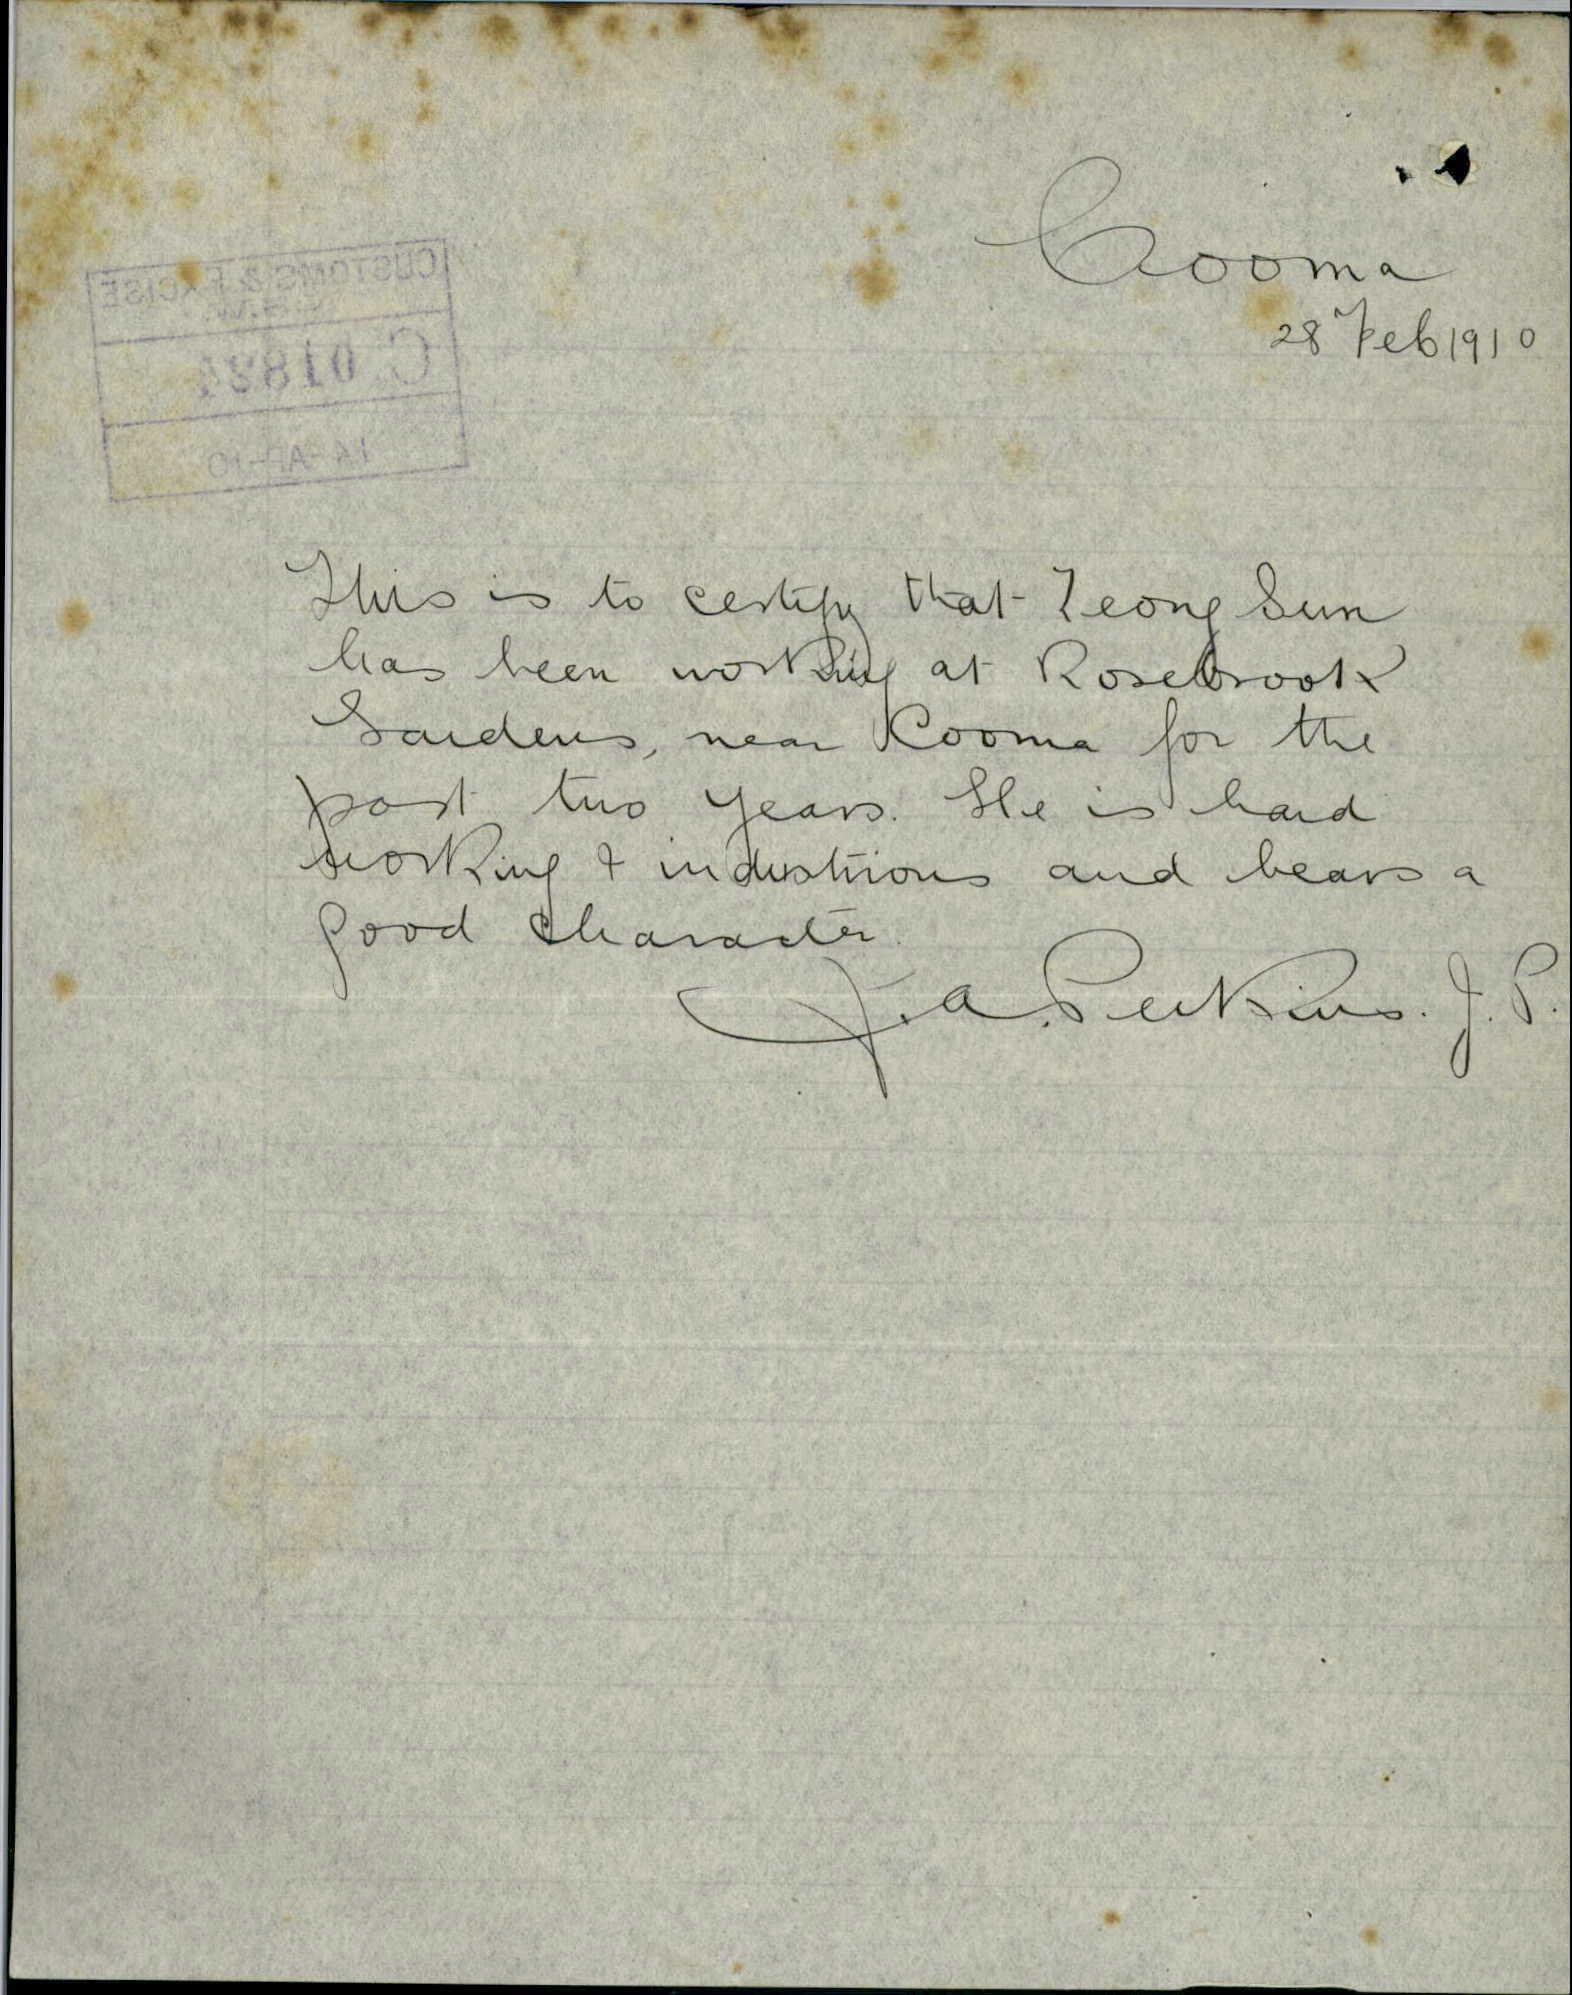 Cooma
28 Feb 1910
CUSTOMS & EXCISE
N.S.W.
C 01824
14-AP-10
This is to certify that Zeong Sun
has been working at Rosebrook
Gardens, near Cooma for the
past two years. He is hard
working & industrious and bears a
good character.
J. A. Perkins. J. P.